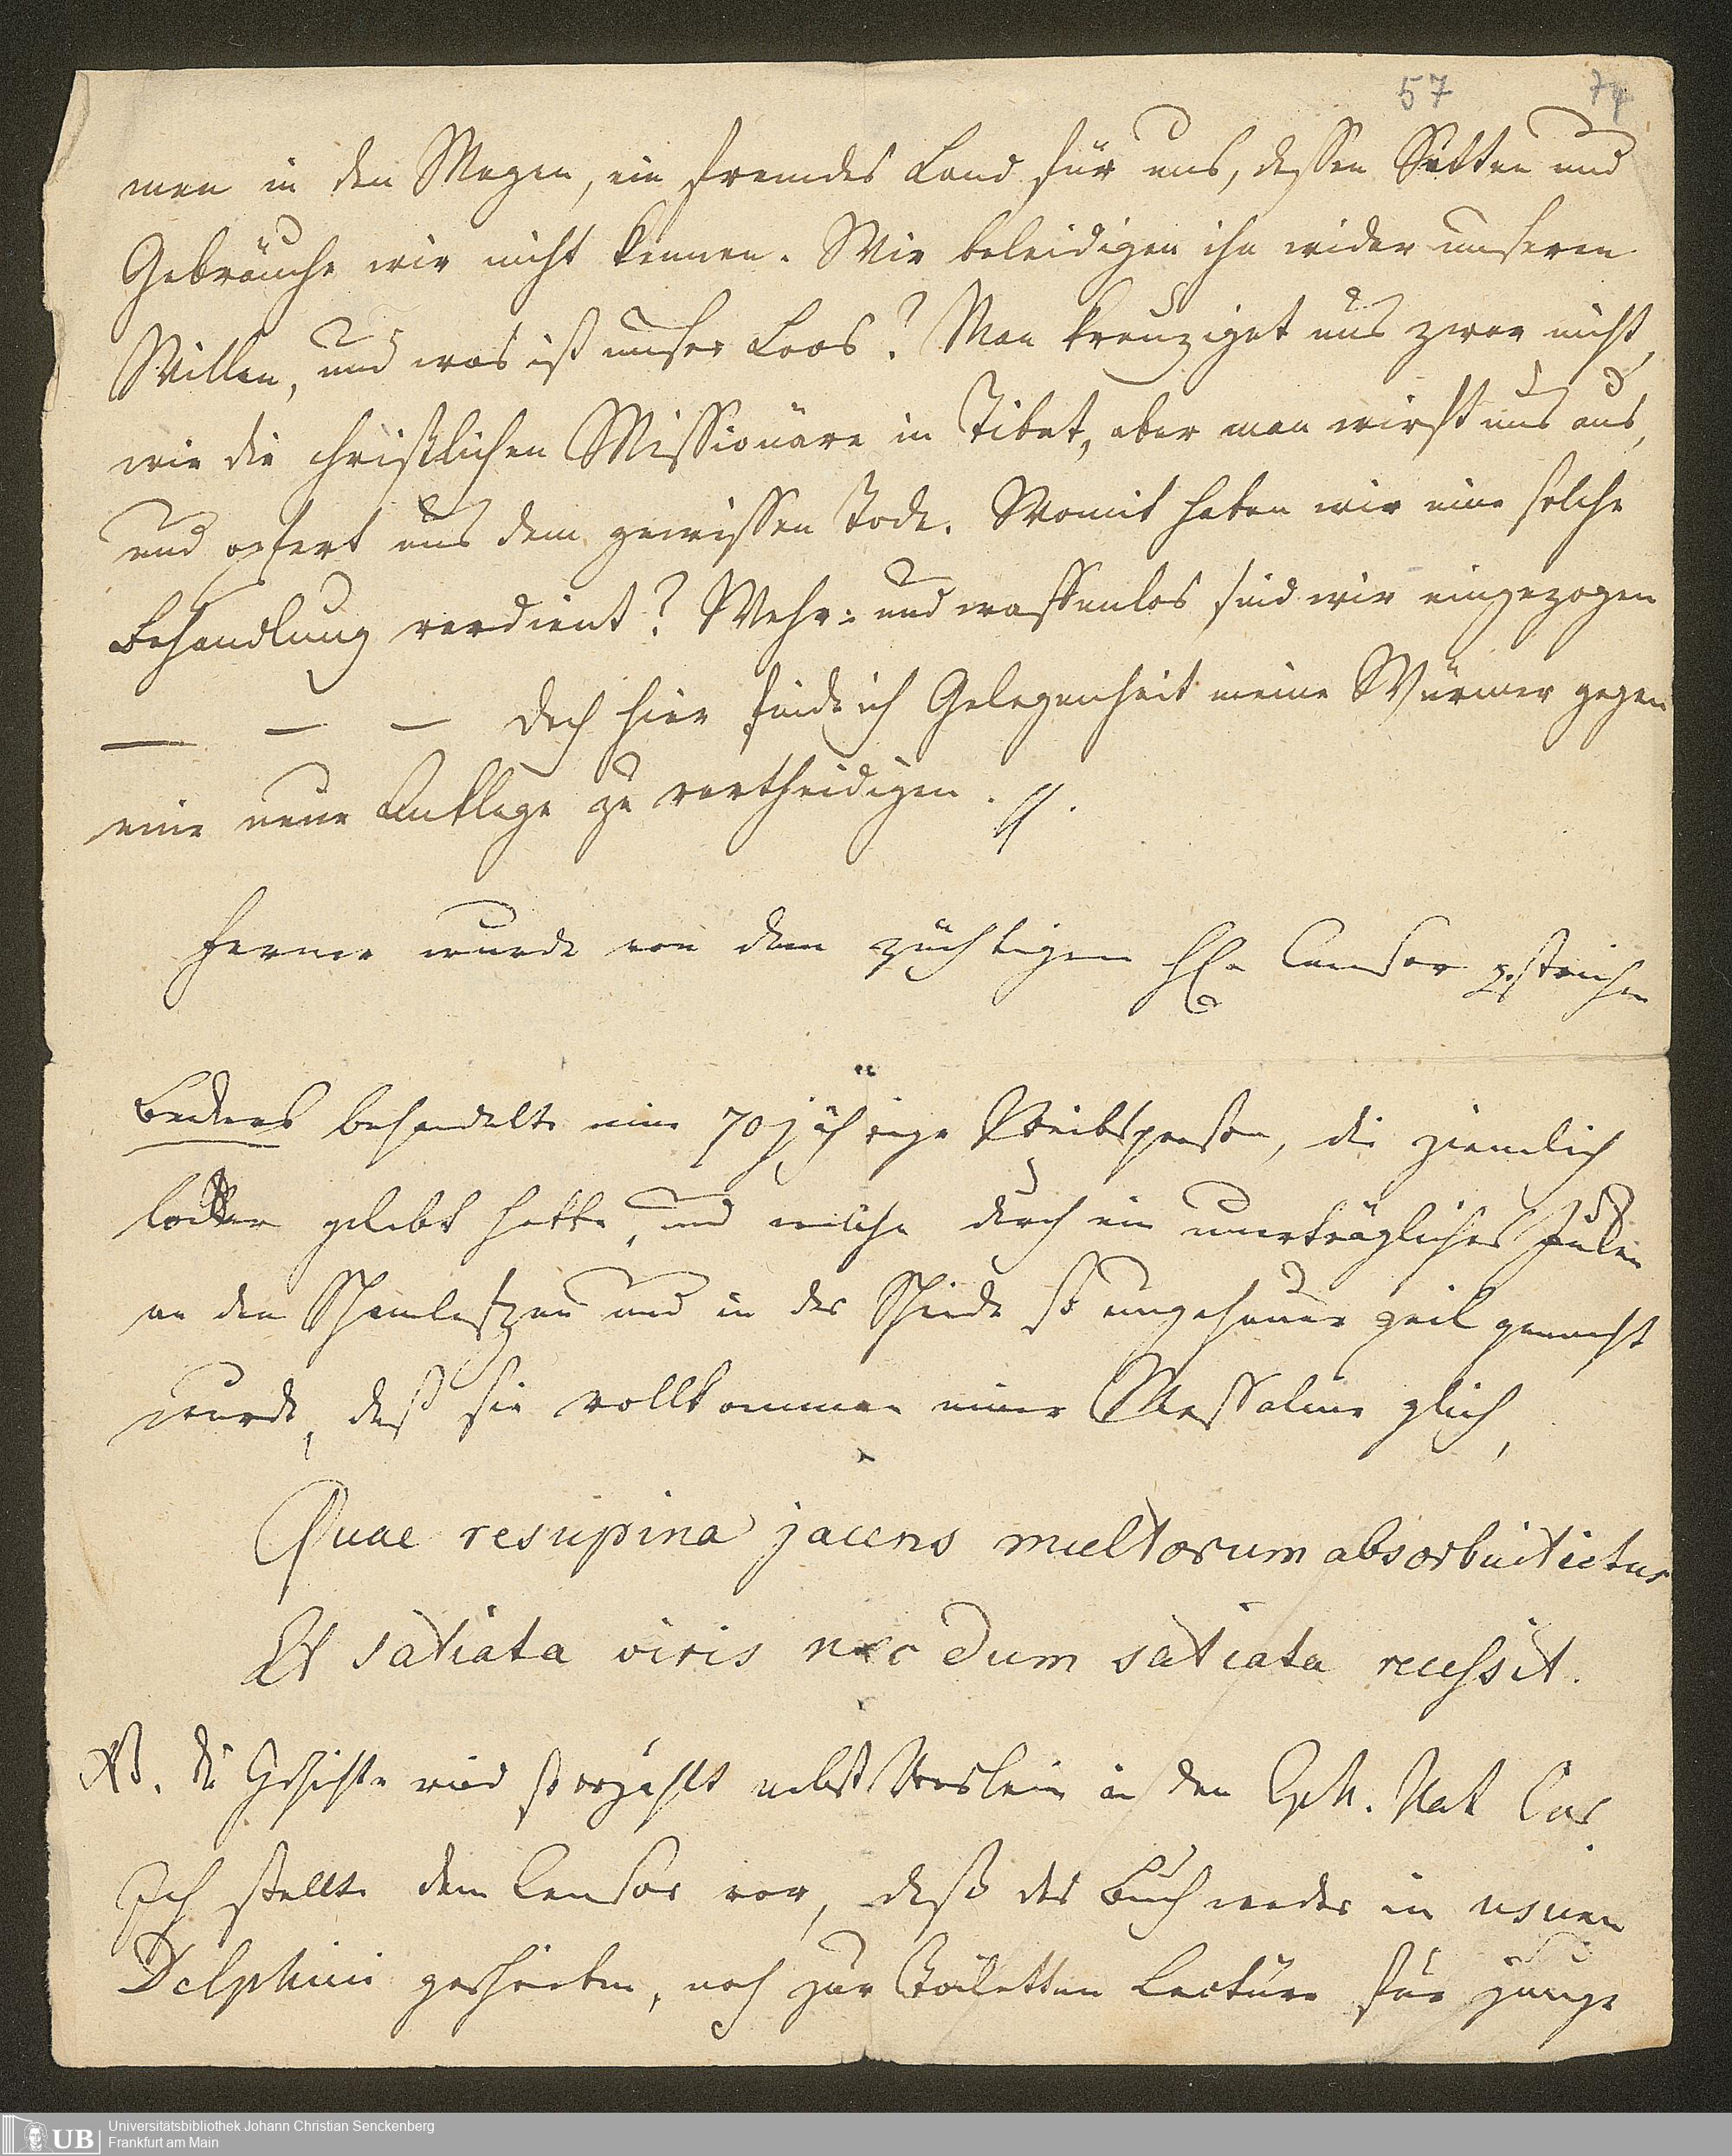 57 74
men in den Magen, ein fremdes Land für uns, dessen Sitten und
Gebräuche wir nicht kennen. Wir beleidigen ihn wider unseren
Willen, und was ist unser Loos? Man kreuziget uns zwar nicht,
wie die christlichen Missionäre in Tibet, aber man wirft uns aus,
und opfert uns dem gewissen Tode. Womit haben wir eine solche
Behandlung verdient? Wehr- und waffenlos sind wir eingezogen
— — — doch hier finde ich Gelegenheit meine Würmer gegen
eine neue Anklage zu vertheidigen.
Ferner wurde von dem züchtigen H. Censor gestrichen
behandelte eine 70jährige Weibsperson, die ziemlich
locker gelebt hatte, und welche durch ein unerträgliches Jucken
an den Schamlefzen und in der Scheide so ungeheuer geil gemacht
wurde, daß sie vollkommen einer Messaline glich,
Quae resupina jacens multorum absorbuit ictus
Et satiata viris nec dum satiata recessit.
NB. die Geschichte wird so erzählt nebst Verslein in den Eph. Nat Cur.
Ich stellte dem Censor vor, daß das Buch weder in usum
Delphini geschrieben, noch zur Toiletten Lectüre für junge
UB
Universitätsbibliothek Johann Christian Senckenberg
Frankfurt am Main